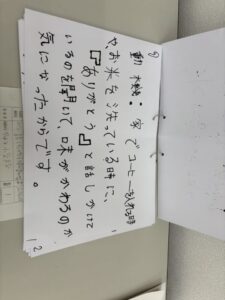 動機：家でコーヒー
や、お米を洗っている時に、
『ありがとう』と話しかけて
いるのを聞いて、味がかわるのか
気になったからです。
12